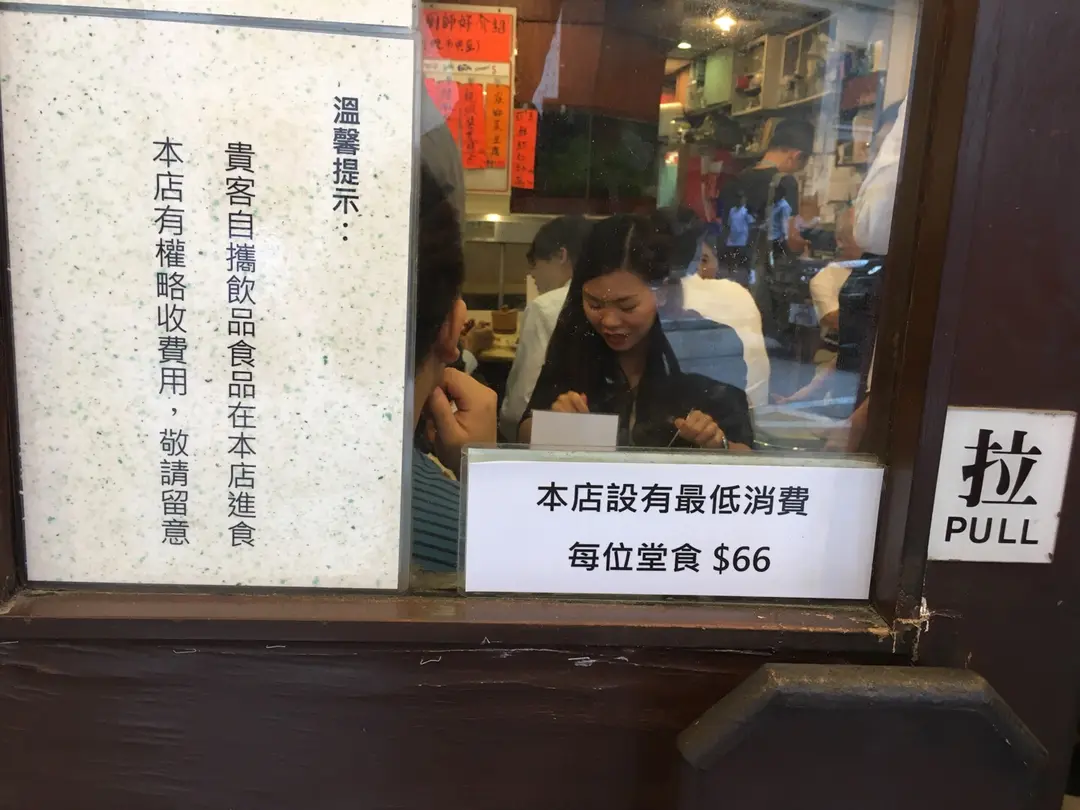 溫馨提示：
貴客自攜飲品食品在本店進食
本店有權略收費用，敬請留意
本店設有最低消費
每位堂食 $66
拉
PULL